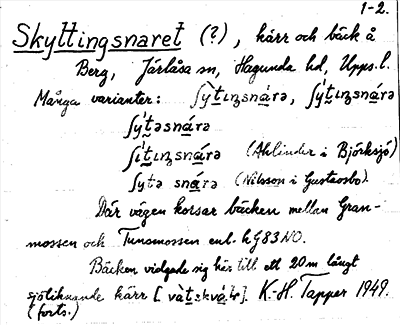 1-2.
Skyttingsnaret (?), kärr och bäck å
Berg, Järlåsa sn, Hagunda hd, Upps. l.
Många varianter: ʃy̍tıŋsnárə, ʃy̍tıŋsnárə
ʃy̍təsnárə
ʃı̍tıŋsnárə (Ahlinder i Björksjö)
ʃytə snárə (Nilsson i Gustavsbo).
Där vägen korsar bäcken mellan Gran-
mossen och Tunsmossen enl. hG83NO.
Bäcken vidgade sig här till ett 20 m långt
sjöliknande kärr [ K.-H. Tapper 1949.
(forts.)